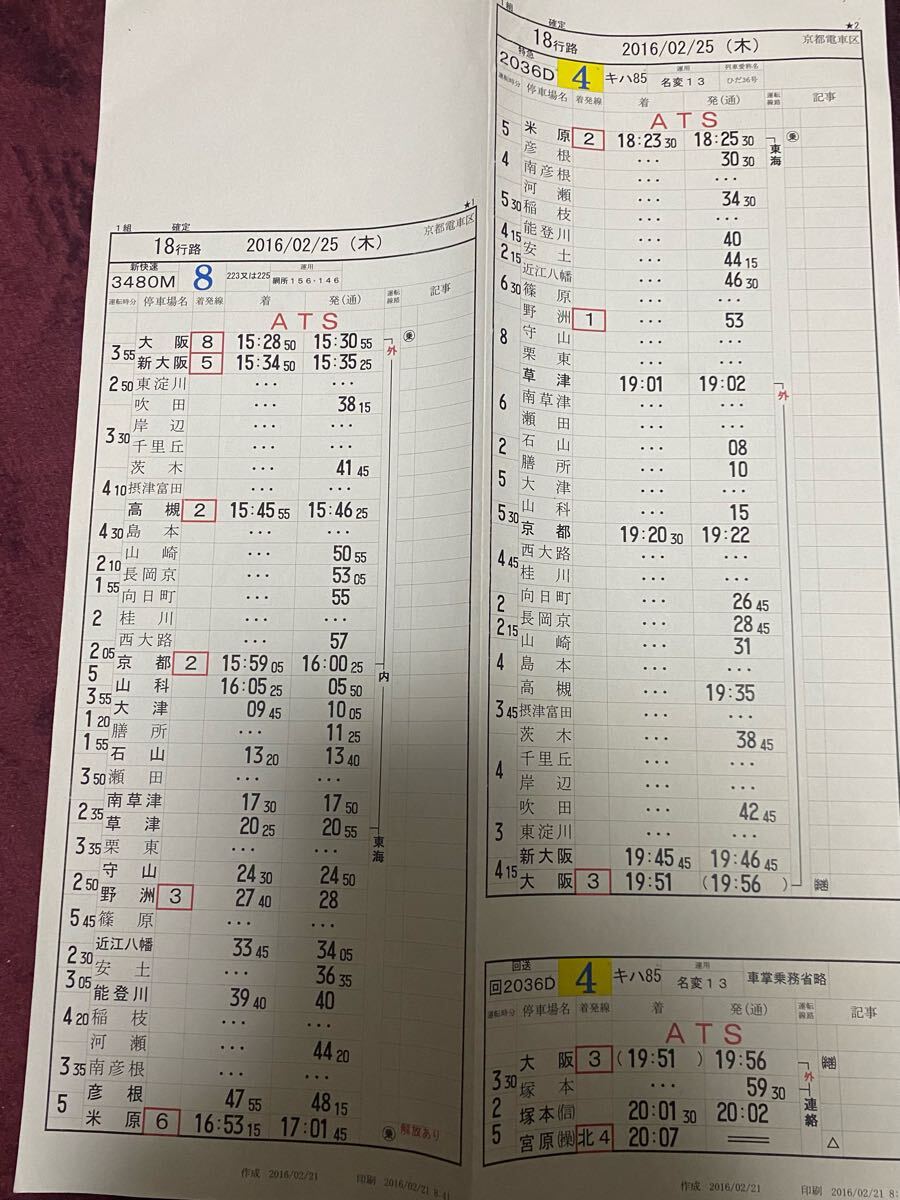 ★1
1組 確定
18行路 2016/02/25 (木) 京都電車区
新快速 運用
3480M 8 223又は225 網所156・146
運転時分 停車場名 着発線 着 発(通) 運転線路 記事
ATS
大阪 8 15:28 50 15:30 55 乗
3 55 外
新大阪 5 15:34 50 15:35 25
2 50
東淀川 ... ...
吹田 ... 38 15
岸辺 ... ...
3 30
千里丘 ... ...
茨木 ... 41 45
4 10
摂津富田 ... ...
高槻 2 15:45 55 15:46 25
4 30
島本 ... ...
山崎 ... 50 55
2 10
長岡京 ... 53 05
1 55
向日町 ... 55
2
桂川 ... ...
西大路 ... 57
2 05
京都 2 15:59 05 16:00 25
5 内
山科 16:05 25 05 50
3 55
大津 09 45 10 05
1 20
膳所 ... 11 25
1 55
石山 13 20 13 40
3 50
瀬田 ... ...
南草津 17 30 17 50
2 35
草津 20 25 20 55
3 35 東海
栗東 ... ...
守山 24 30 24 50
2 50
野洲 3 27 40 28
5 45
篠原 ... ...
近江八幡 33 45 34 05
2 30
安土 ... 36 35
3 05
能登川 39 40 40
4 20
稲枝 ... ...
河瀬 ... 44 20
3 35
南彦根 ... ...
彦根 47 55 48 15
5
米原 6 16:53 15 17:01 45 乗 解放あり
作成 2016/02/21 印刷 2016/02/21 8:41
★2
1組 確定
18行路 2016/02/25 (木) 京都電車区
特急 運用 列車愛称名
2036D 4 キハ85 名変13 ひだ36号
運転時分 停車場名 着発線 着 発(通) 運転線路 記事
ATS
5 米原 2 18:23 30 18:25 30 乗
東海
彦根 ... 30 30
4
南彦根 ... ...
河瀬 ... 34 30
5 30
稲枝 ... ...
能登川 ... 40
4 15
安土 ... 44 15
2 15
近江八幡 ... 46 30
6 30
篠原 ... ...
野洲 1 ... 53
守山 ... ...
8
栗東 ... ...
草津 19:01 19:02
外
南草津 ... ...
6
瀬田 ... ...
石山 ... 08
2
膳所 ... 10
5
大津 ... ...
山科 ... 15
5 30
京都 19:20 30 19:22
西大路 ... ...
4 45
桂川 ... ...
向日町 ... 26 45
2
長岡京 ... 28 45
2 15
山崎 ... 31
4
島本 ... ...
高槻 ... 19:35
3 45
摂津富田 ... ...
茨木 ... 38 45
千里丘 ... ...
4
岸辺 ... ...
吹田 ... 42 45
3
東淀川 ... ...
新大阪 19:45 45 19:46 45
4 15
大阪 3 19:51 (19:56)
回送 運用
回2036D 4 キハ85 名変13 車掌乗務省略
運転時分 停車場名 着発線 着 発(通) 運転線路 記事
ATS
大阪 3 (19:51) 19:56
3 30 外
塚本 ... 59 30
2 連絡
塚本(信) 20:01 30 20:02
5
宮原(操) 北4 20:07 ═ △
作成 2016/02/21 印刷 2016/02/21 8: